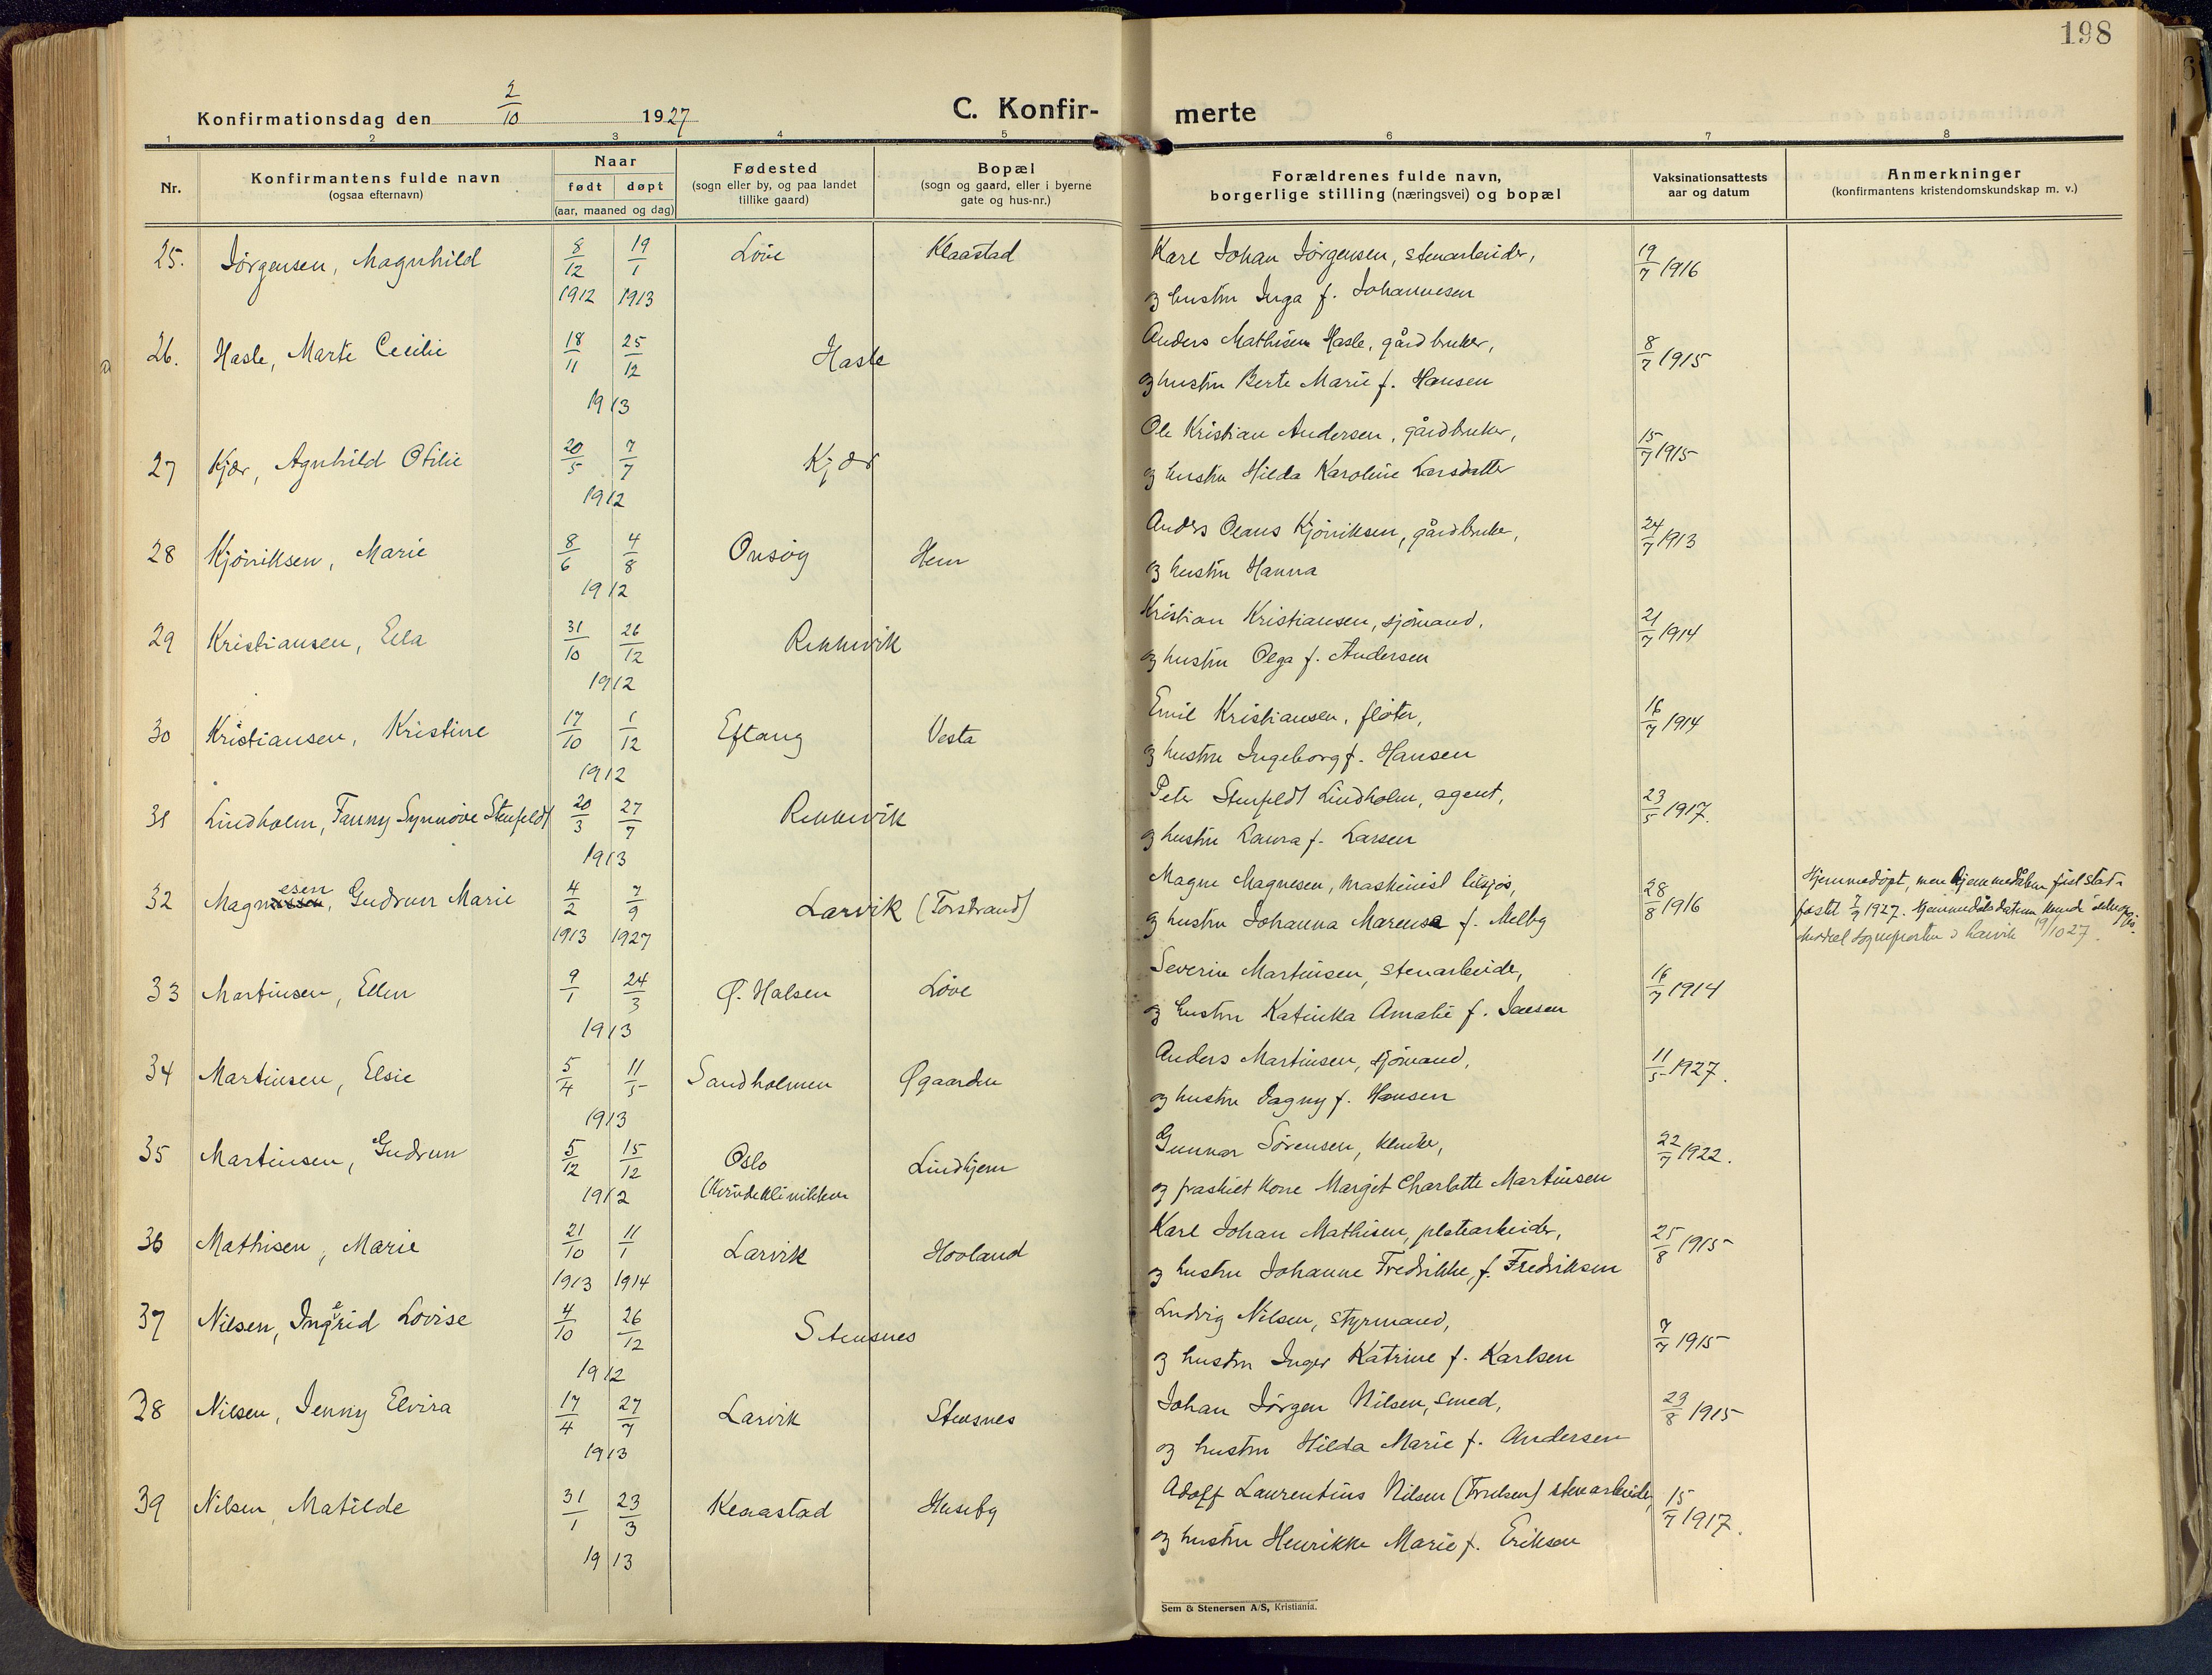 198
Konfirmationsdag den 2/10 1927 C. Konfir- merte
1 2 3 4 5 6 7 8
Nr. Konfirmantens fulde navn (ogsaa efternavn) Naar født døpt (aar, maaned og dag) Fødested (sogn eller by, og paa landet tillike gaard) Bopæl (sogn og gaard, eller i byerne gate og hus-nr.) Forældrenes fulde navn, borgerlige stilling (næringsvei) og bopæl Vaksinationsattests aar og datum Anmerkninger (konfirmantens kristendomskundskap m. v.)
25. Jörgensen, Magnhild 8/12 1912 19/1 1913 Löve Klaastad Karl Johan Jörgensen, stenarbeider, 19/7 1916
og hustru Inga f. Johannesen
26. Hasle, Marte Cecilie 18/11 25/12 1913 Hasle Anders Mathisen Hasle, gårdbruker, 8/7 1915
og hustru Berte Marie f. Hansen
27 Kjær, Agnhild Otilie 20/5 7/7 1912 Kjær Ole Kristian Andersen, gårdbruker, 15/7 1915
og hustru Hilda Karoline Larsdatter
28 Kjönniksen, Marie 8/6 4/8 1912 Onsög Hem Anders Olaus Kjönniksen, gårdbruker, 24/7 1913
og hustru Hanna
29 Kristiansen, Ella 31/10 26/12 1912 Rekkevik Kristian Kristiansen, sjömand, 21/7 1914
og hustru Olga f. Andersen
30 Kristiansen, Kristine 17/10 1/12 1912 Eftang Vesta Emil Kristiansen, flöter, 16/7 1914
og hustru Ingeborg f. Hansen
31 Lindholm, Fanny Synnöve Stenfeldt 20/3 27/7 1913 Rekkevik Peter Stenfeldt Lindholm, agent, 23/5 1917.
og hustru Laura f. Larsen
32 Magnesen, Gudrun Marie 4/2 1913 7/9 1927 Larvik (Torstrand) Magne Magnesen, maskinist tilsjös, 28/8 1916
og hustru Johanna Marensa f. Melby
Hjemmedöpt, men hjemmedåben
fæstet 7/9 1927. Hjemmedåbsdatum
sogneprestен i Larvik 19/10 27.
33 Martinsen, Ellen 9/1 24/3 1913 Ø. Halsen Löve Severin Martinsen, stenarbeider, 16/7 1914
og hustru Katinka Amalie f. Jansen
34 Martinsen, Elsie 5/4 11/5 1913 Sandholmen Øgaarden Anders Martinsen, sjömand, 11/5 1927.
og hustru Dagny f. Hansen
35 Martinsen, Gudrun 5/12 15/12 1912 Oslo (Kvindeklinikken Lindhjem Gunnar Sörensen, 22/7 1922.
og fraskilt kone Margit Charlotte Martinsen
36 Mathisen, Marie 21/10 1913 11/1 1914 Larvik Hovland Karl Johan Mathisen, platearbeider, 25/8 1915
og hustru Johanne Fredrikke, f. Fredriksen
37 Nilsen, Ingerid Lovise 4/10 26/12 1912 Stensnes Ludvig Nilsen, styrmand, 7/7 1915
og hustru Inger Katrine f. Karlsen
38 Nilsen, Jenny Elvira 17/4 27/7 1913 Larvik Stensnes Johan Jörgen Nilsen, smed, 23/8 1915
og hustru Hilda Marie f. Andersen
39 Nilsen, Matilde 31/1 23/3 1913 Klaastad Huseby Adolf Laurentius Nilsen (Trulsen) stenarbeider, 15/7 1917.
og hustru Henrikke Marie f. Eriksen
Sem & Stenersen A/S, Kristiania.